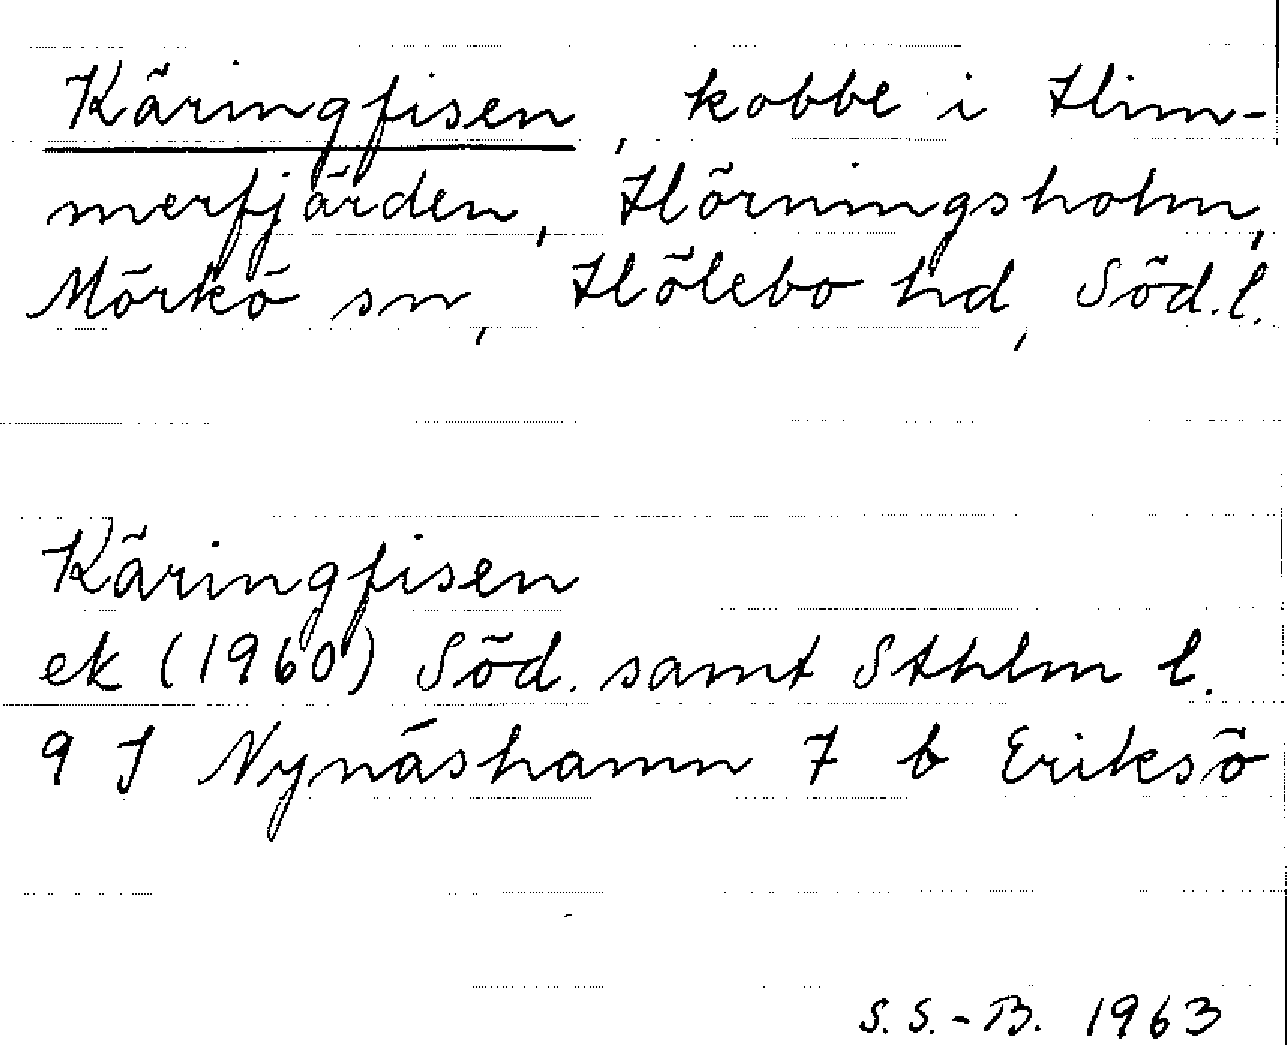 Käringfisen, kobbe i Him-
merfjärden, Hörningsholm,
Mörkö sn, Hölebo hd, Söd.l.
Käringfisen
ek (1960) Söd. samt Sthlm l.
9 I Nynäshamn 7 b Eriksö
S. S.-B. 1963